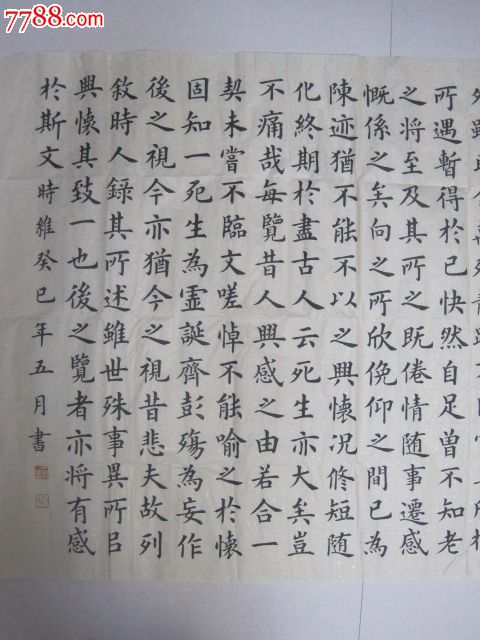 7788.com
所遇暫得於己快然自足曽不知老
之將至及其所之既倦情随事遷感
慨係之矣向之所欣俛仰之間已為
陳迹猶不能不以之興懷况修短随
化終期於盡古人云死生亦大矣豈
不痛哉每覽昔人興感之由若合一
契未嘗不臨文嗟悼不能喻之於懷
固知一死生為虛誕齊彭殤為妄作
後之視今亦猶今之視昔悲夫故列
敘時人錄其所述雖世殊事異所㠯
興懷其致一也後之覽者亦將有感
於斯文時維癸巳年五月書